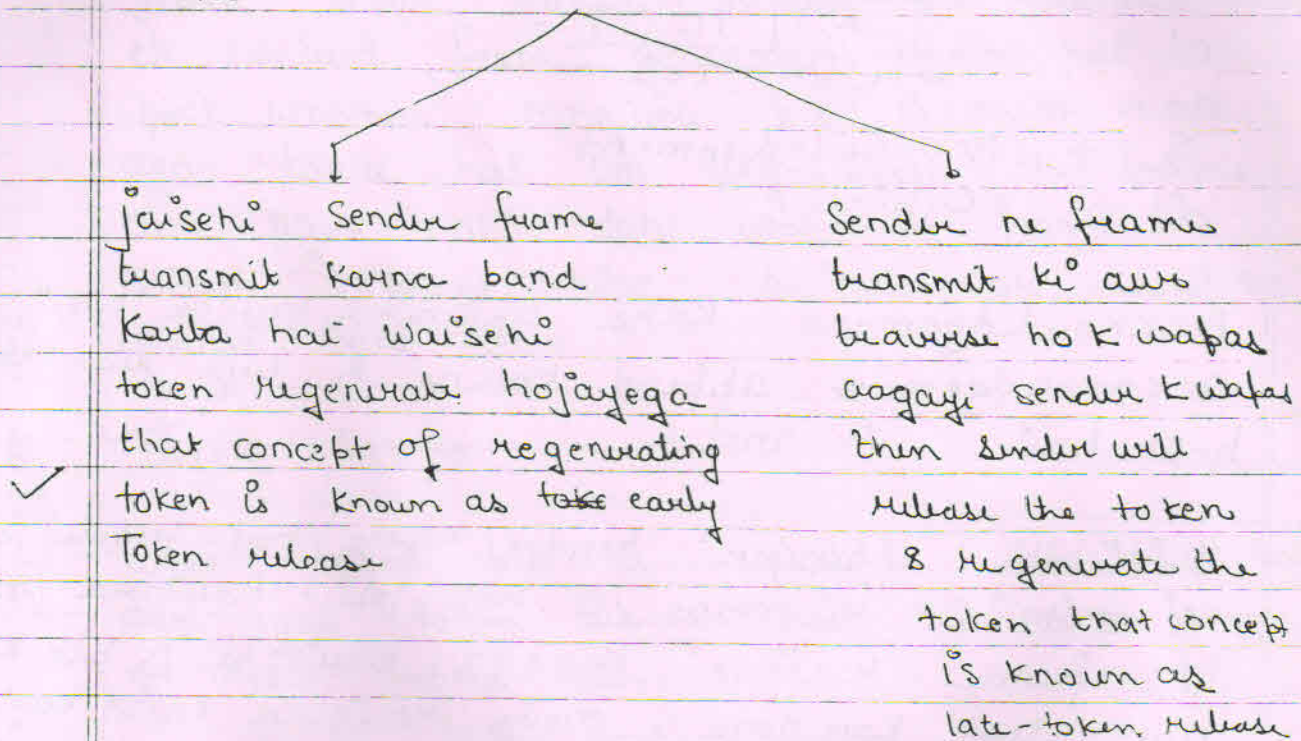 jaisehi Sender frame
transmit karna band
Karta hai waisehi
token regenerate hojayega
that concept of regenerating
token is known as early
Token release
Sender ne frame
transmit ki aur
traverse ho k wapas
aagayi sender k wapas
then sender will
release the token
& regenerate the
token that concept
is known as
late-token release